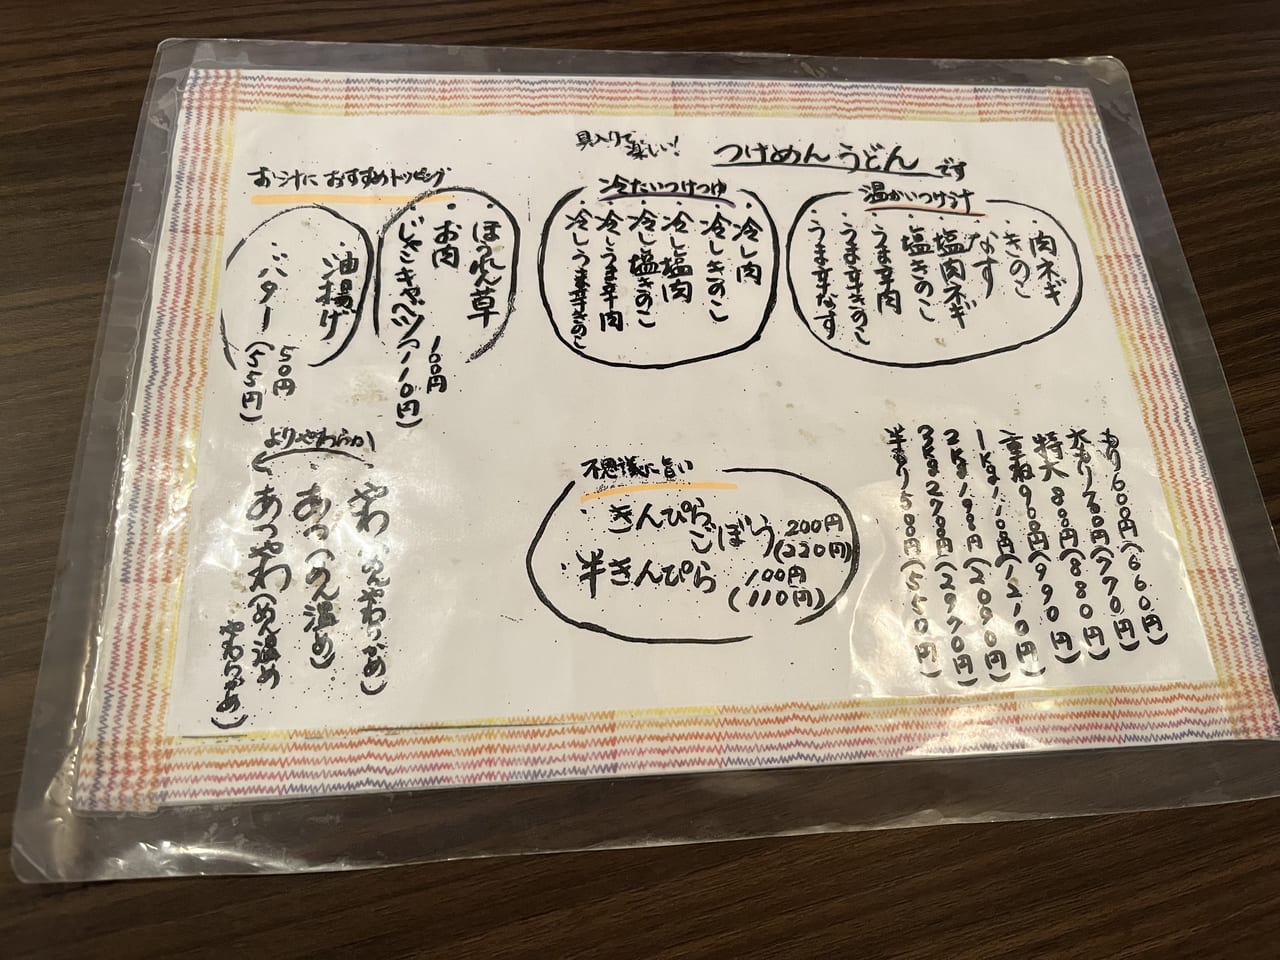 具入りで
楽しい!
つけめんうどん
です
温かいつけ汁
・肉ネギ
・きのこ
・なす
・塩肉ネギ
・塩きのこ
・うま辛肉
・うま辛きのこ
・うま辛なす
冷たいつけつゆ
・冷し肉
・冷しきのこ
・冷し塩肉
・冷し塩きのこ
・冷しうま辛肉
・冷しうま辛きのこ
お汁におすすめトッピング
・ほうれん草
・お肉 100円
・じゃこキャベツ(110円)
・油揚げ 50円
・バター (55円)
もり600円(660円)
大もり700円(770円)
特大800円(880円)
重ね900円(990円)
1kg1100円(1210円)
2kg1900円(2090円)
3kg2700円(2970円)
半もり500円(550円)
不思議に旨い
・きんぴら
ごぼう 200円
(220円)
・半きんぴら 100円
(110円)
よりやわらか
やわ(めんやわらかめ)
あつ(めん温め)
あつやわ(めん温め
やわらかめ)